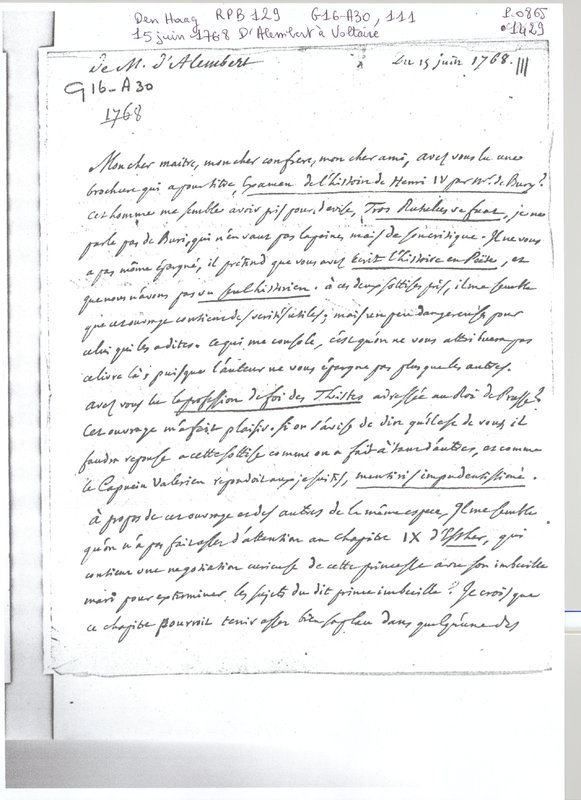 Den Haag RPB 129 G16-A30, 111
P.0865
15 juin 1768 D'Alembert à Voltaire
1429
de M. d'Alembert
Du 15 juin 1768.
G16-A30
1768
Mon cher maitre, mon cher confrere, mon cher ami, avez vous lu une
brochure qui a pour titre, Examen de l'histoire de Henri IV par Mr. de Bury?
Cet homme me semble avoir pris pour devise, Tros Rutulus ve fuat, je ne
parle pas de Buri, qui n'en vaut pas la peine, mais de son critique. Il ne vous
a pas même épargné, il prétend que vous avez écrit l'histoire en Poëte, et
que nous n'avons pas un seul historien. à ces deux sottises près, il me semble
que cet ouvrage contient des vérités utiles; mais un peu dangereuses pour
celui qui les a dites. Ce qui me console, c'est qu'on ne vous attribuera pas
ce livre là, puisque l'auteur ne vous épargne pas plus que les autres.
avez vous lu la profession de foi des Théistes adressée au Roi de Prusse?
Cet ouvrage m'a fait plaisir. Si on s'avise de dire qu'il est de vous, il
faudra reponse a cette sottise comme on a fait à tant d'autres, et comme
le Capucin Valerien repondoit aux jesuites, mentiris impudentissime.
À propos de cet ouvrage et des autres de la même espece, Il me semble
qu'on n'a pas fait assez d'attention au chapitre IX d'Esther, qui
contient une negotiation curieuse de cette princesse avec son imbecille
mari pour exterminer les sujets du dit prince imbecille? Je crois que
ce chapitre pourroit tenir assez bien sa place dans quelqu'une des